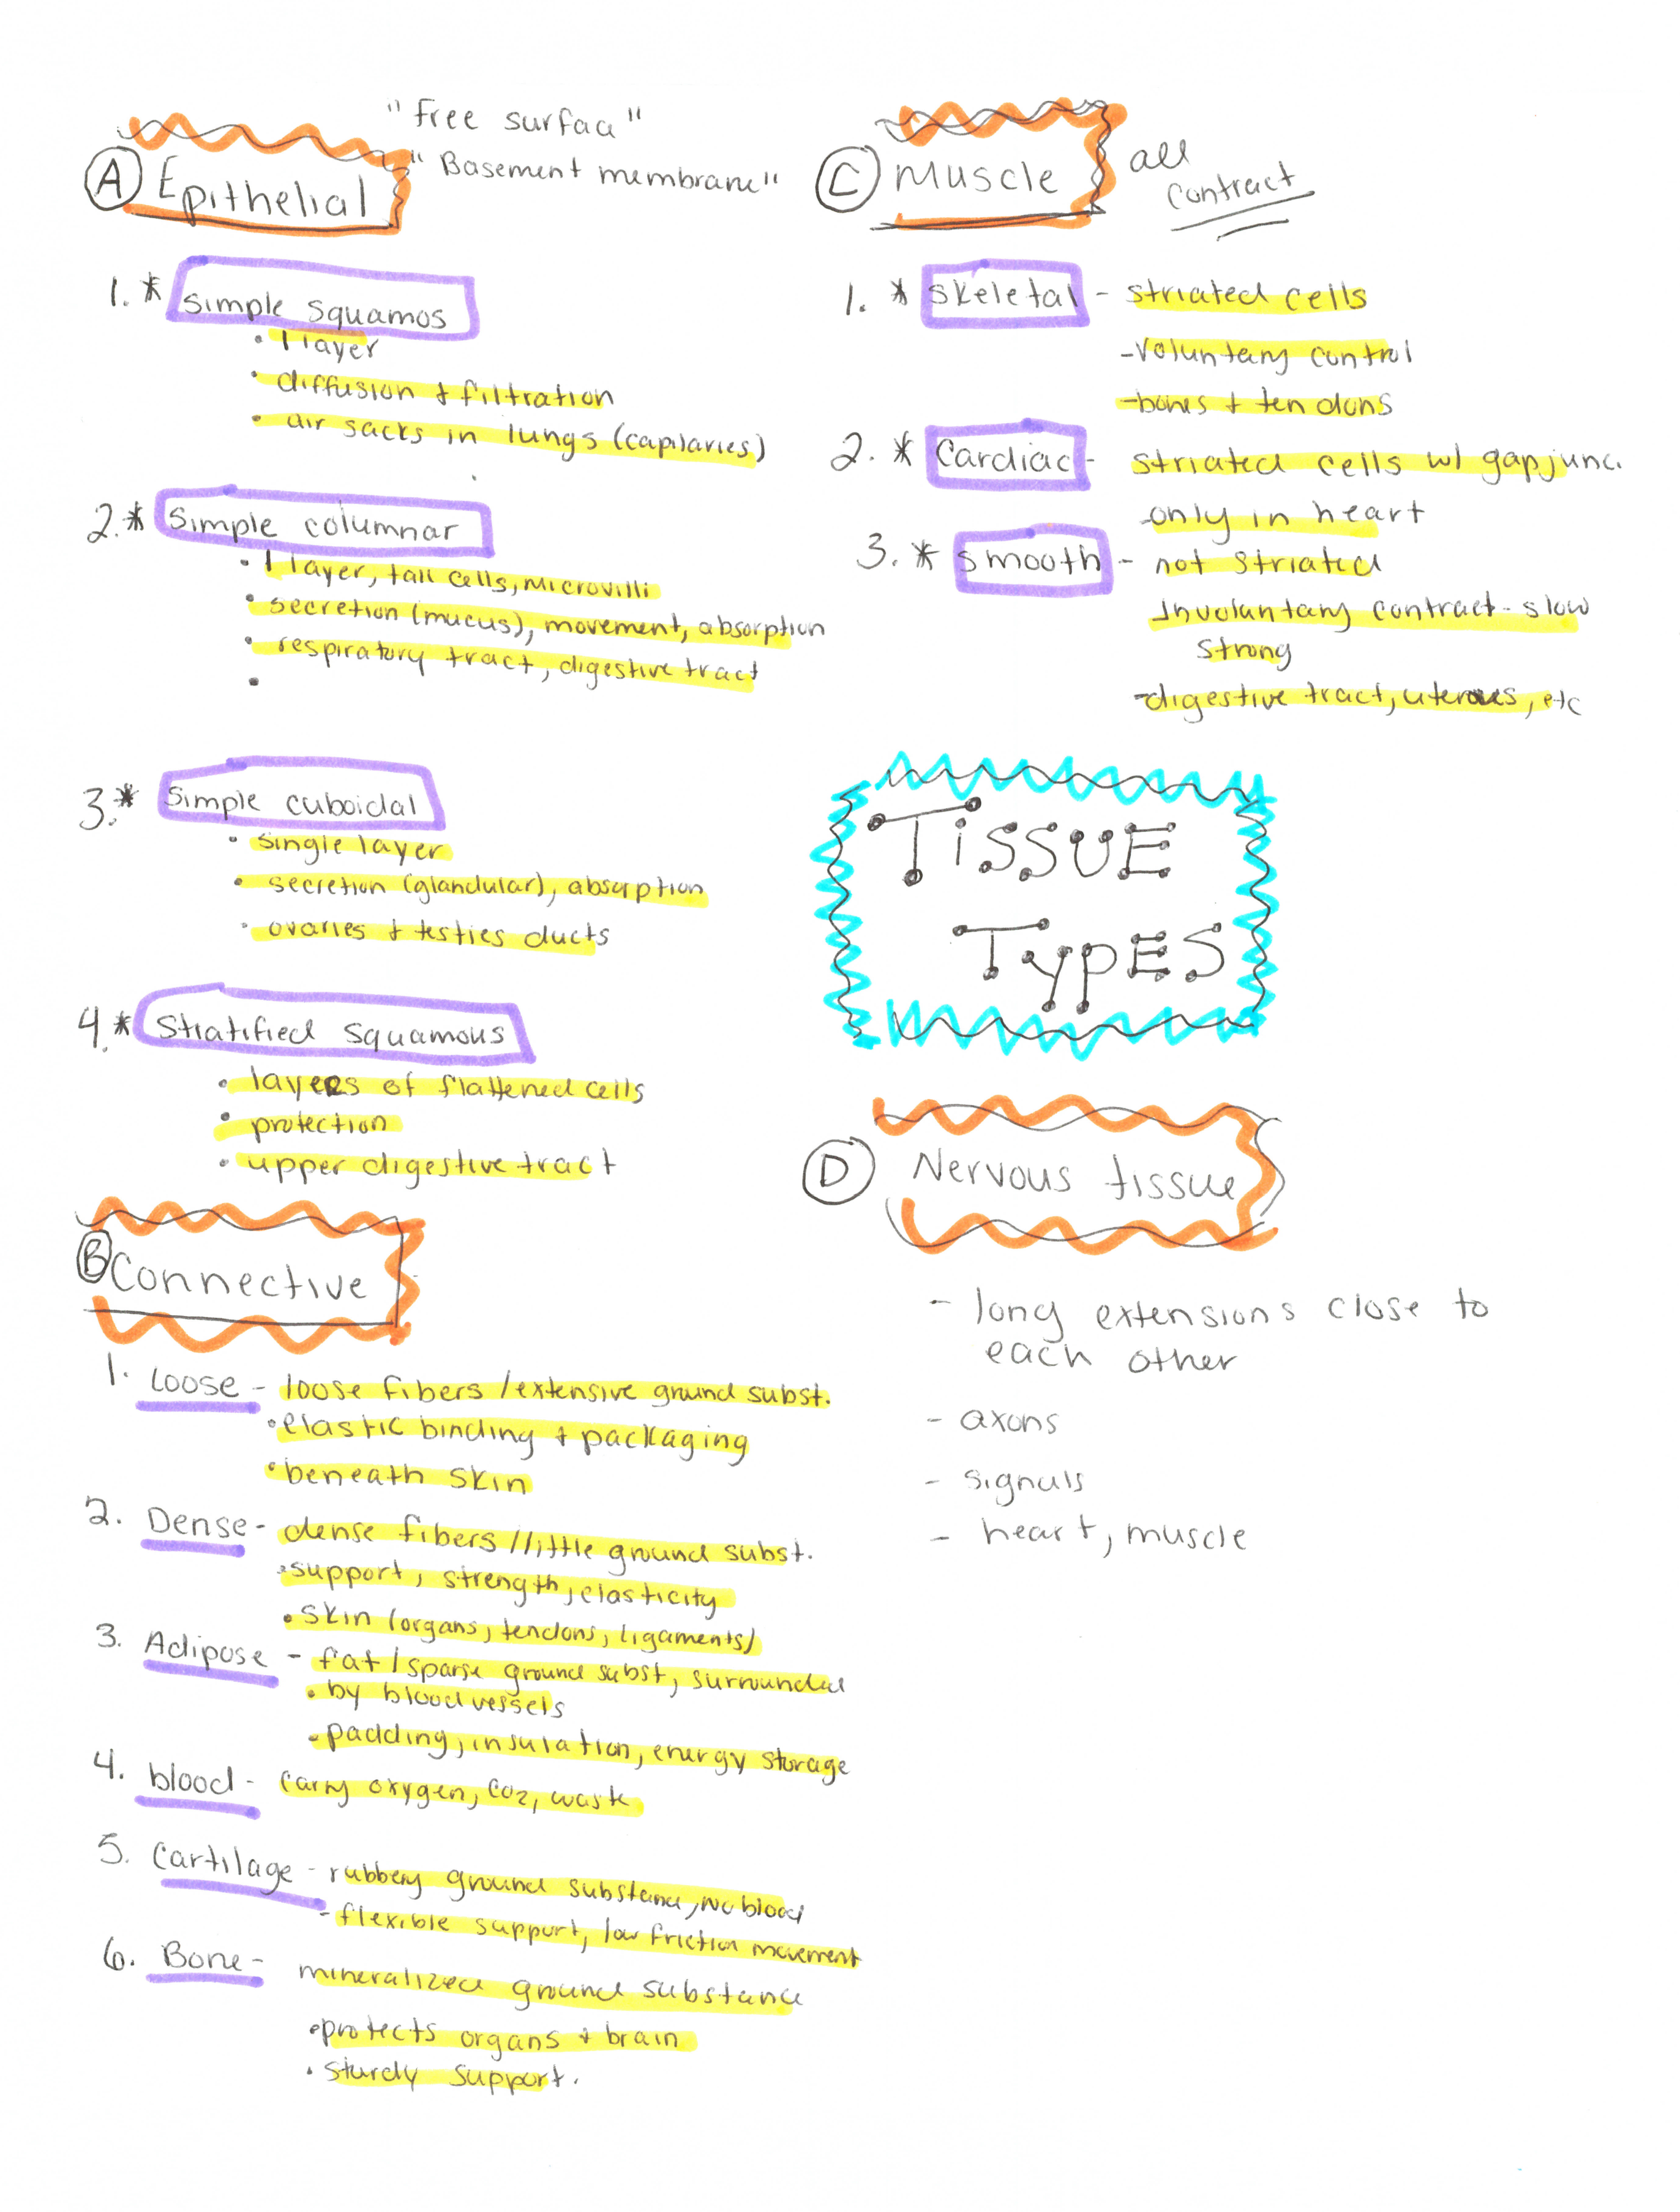 "free surface"
"Basement membrane"
Ⓐ Epithelial
1.* Simple squamos
• 1 layer
• diffusion + filtration
• air sacks in lungs (capilaries)
2.* Simple columnar
• 1 layer, tall cells, microvilli
• secretion (mucus), movement, absorption
• respiratory tract, digestive tract
•
3.* Simple cuboidal
• single layer
• secretion (glandular), absorption
• ovaries + testies ducts
4.* Stratified squamous
• layers of flattened cells
• protection
• upper digestive tract
Ⓑ Connective
1. Loose - loose fibers / extensive ground subst.
• elastic binding + packaging
• beneath skin
2. Dense - dense fibers / little ground subst.
• support, strength, elasticity
• skin (organs, tendons, ligaments)
3. Adipose - fat / sparse ground subst, surrounded
• by blood vessels
• padding, insulation, energy storage
4. blood - carry oxygen, CO2, waste
5. Cartilage - rubbery ground substance, no blood
- flexible support, low friction movement
6. Bone - mineralized ground substance
• protects organs + brain
• sturdy support.
Ⓒ Muscle all
contract
1. * Skeletal - striated cells
- voluntary control
- bones + tendons
2. * Cardiac - striated cells w/ gap junc.
- only in heart
3. * smooth - not striated
Involuntary contract - slow
strong
- digestive tract, uterous, etc
TiSSUE
TypES
Ⓓ Nervous tissue
- long extensions close to
each other
- axons
- signals
- heart, muscle